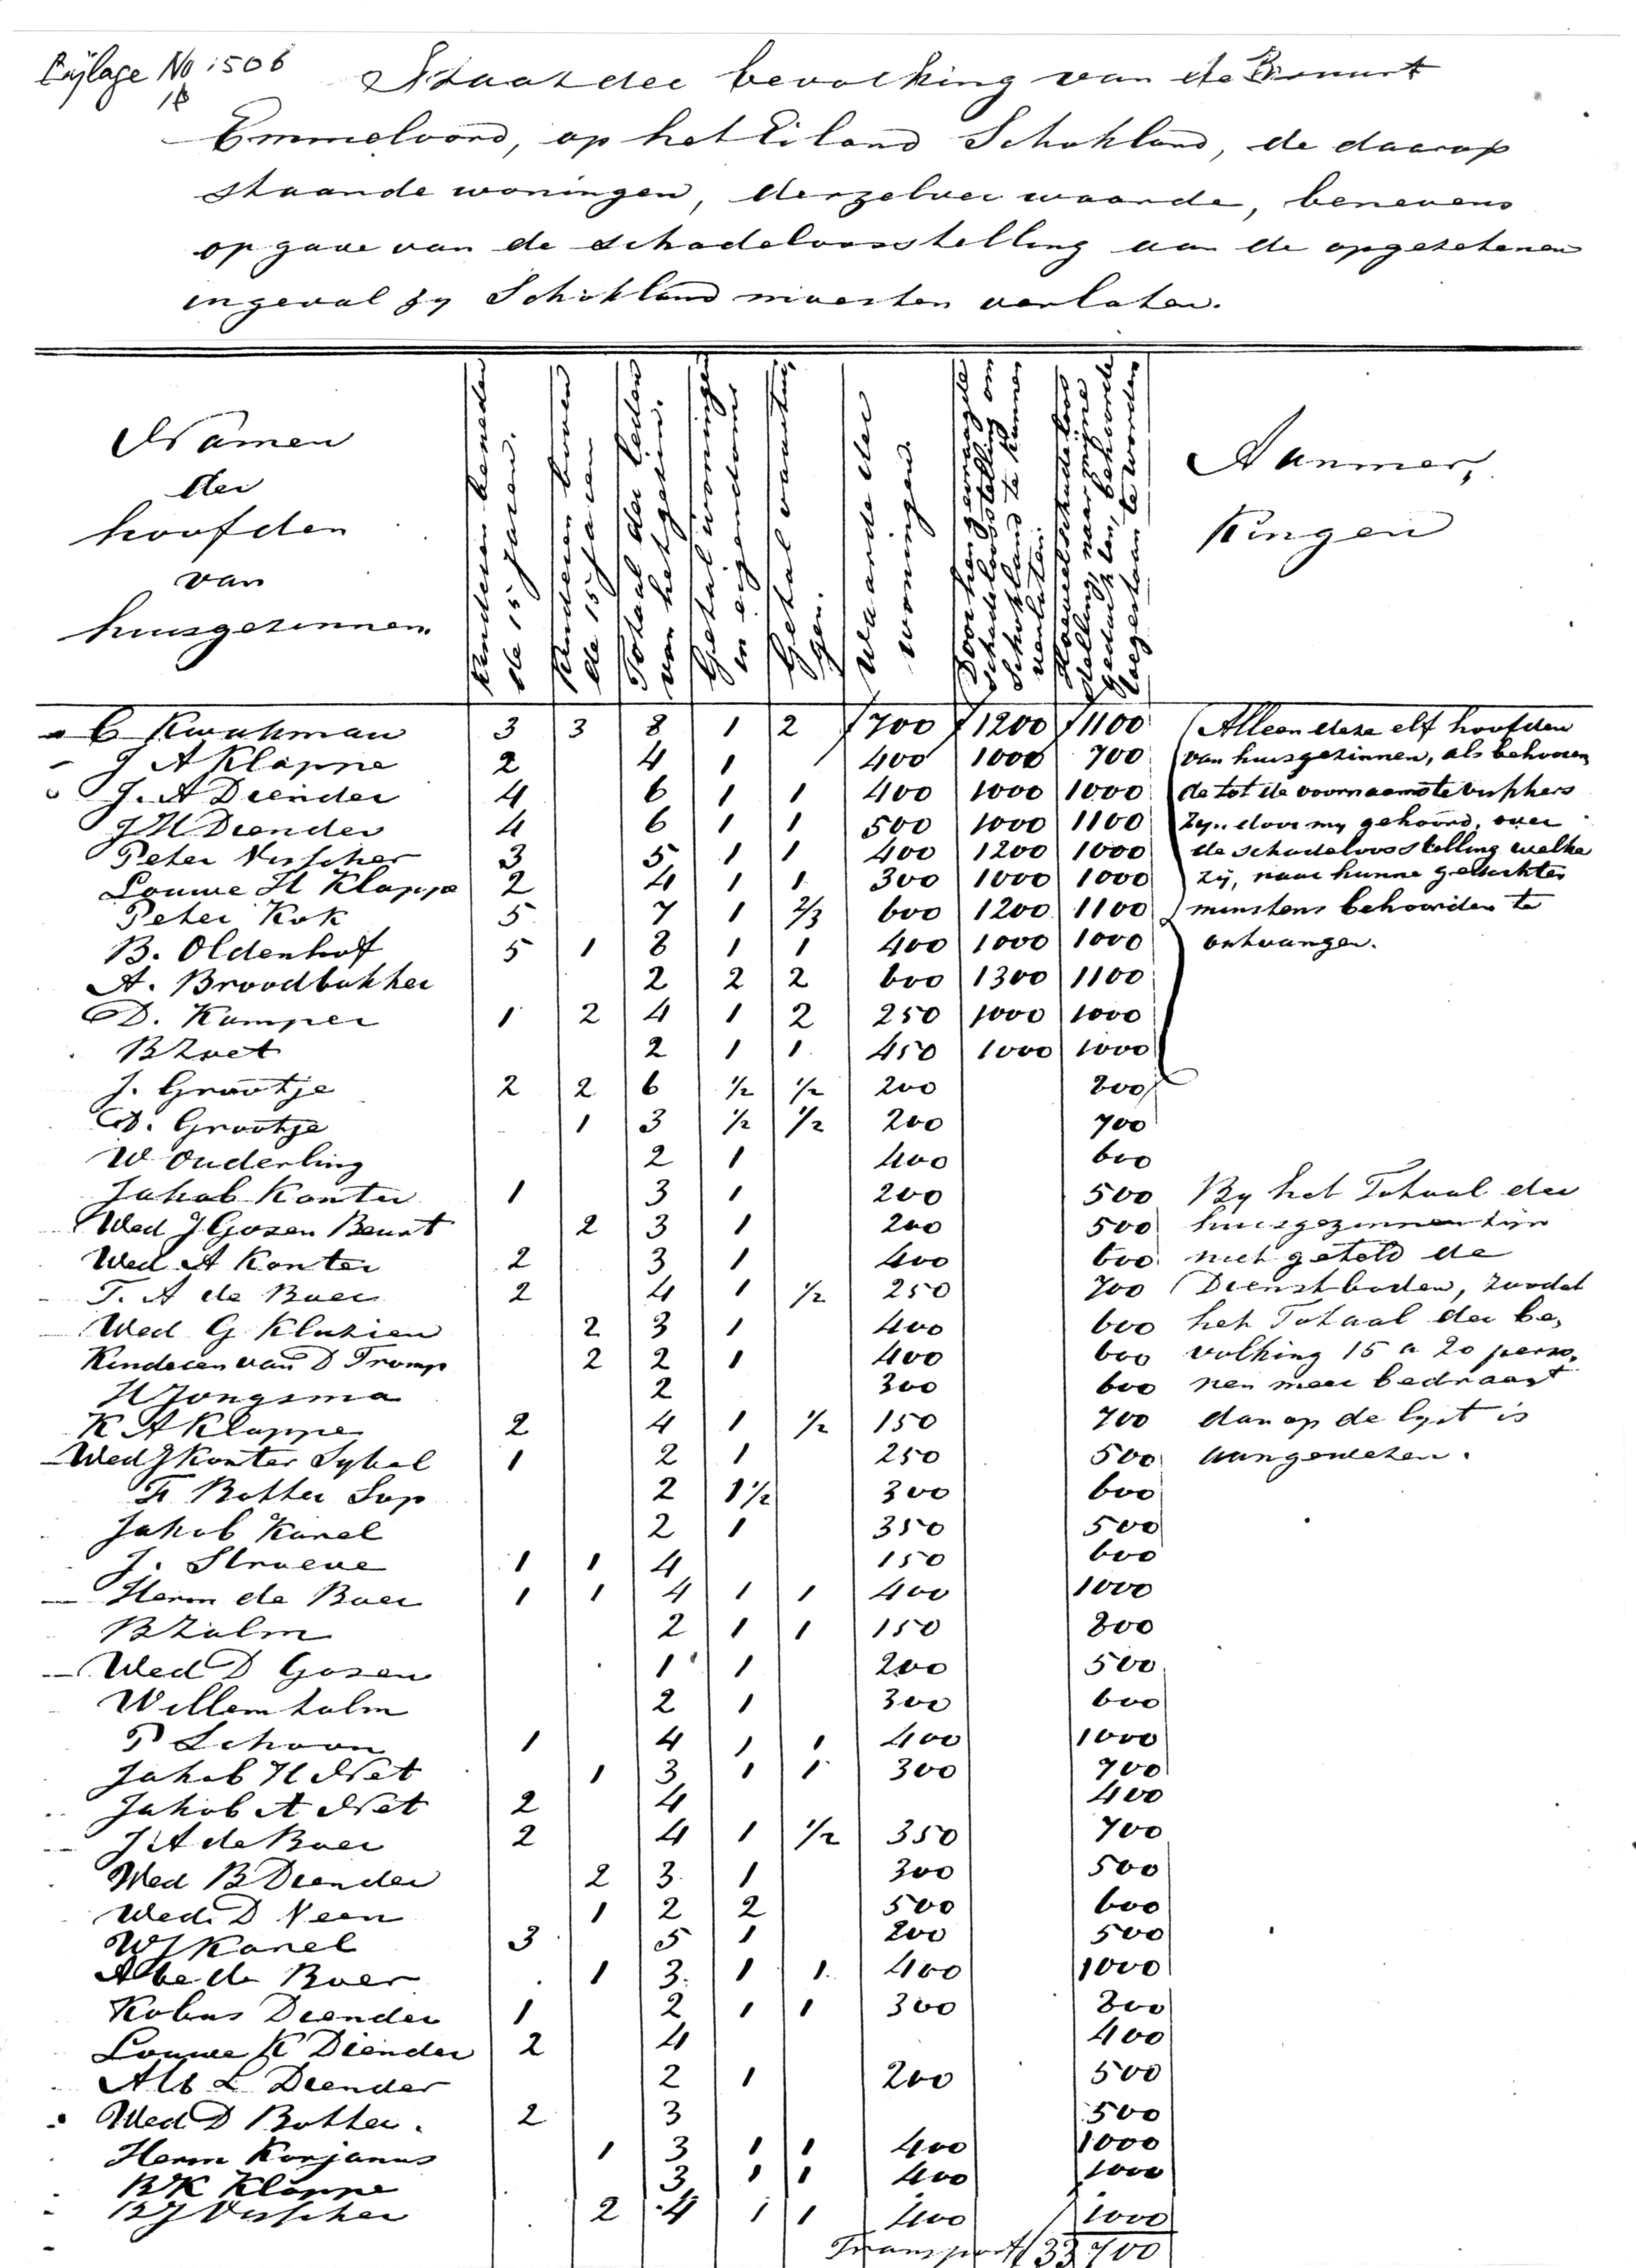 Bijlage No 1506
Staat der bevolking van de Buurt
Emmeloord, op het Eiland Schokland, de daarop
staande woningen, derzelver waarde, benevens
opgave van de schadeloosstelling aan de opgezetenen
ingeval zy Schokland moesten verlaten.
Namen
der
hoofden
van
huisgezinnen
Kinderen beneden
de 15 jaren.
Kinderen boven
de 15 jaren
Totaal der leden
van het gezin.
Getal woningen
in eigendom
Getal vaartui,
gen.
Waarde der
woningen.
Door hen gevraagde
schadeloosstelling om
Schokland te kunnen
verlaten.
Hoeveel schadeloos
stelling, naar mijne
gedachten, behoorde
toegestaan te worden
Aanmer,
kingen
C Kwakman 3 3 8 1 2 f 700 f 1200 f 1100 Alleen deze elf hoofden
J A Klappe 2 4 1 400 1000 700 van huisgezinnen, als behooren
J. A Diender 4 6 1 1 400 1000 1000 de tot de voornaamste visschers
J H Diender 4 6 1 1 500 1000 1100 zyn door my gehoord, over
Peter Visscher 3 5 1 1 400 1200 1000 de schadeloosstelling welke
Louwe H Klappe 2 4 1 1 300 1000 1000 zij, naar hunne gedachten
Peter Kok 5 7 1 2/3 600 1200 1100 minstens behoorden te
B. Oldenhof 5 1 8 1 1 400 1000 1000 ontvangen.
A. Broodbakker 2 2 2 600 1300 1100
D. Kamper 1 2 4 1 2 250 1000 1000
B Zoet 2 1 1 450 1000 1000
J. Grootje 2 2 6 1/2 1/2 200 800
D. Grootje 1 3 1/2 1/2 200 700
W Ouderling 2 1 400 600
Jakob Konter 1 3 1 200 500 By het Totaal der
Wed J Gosen Beunt 2 3 1 200 500 huisgezinnen zijn
Wed A Konter 2 3 1 400 600 niet geteld de
T. A de Boer 2 4 1 1/2 250 700 Dienstboden, zoodat
Wed G Klazien 2 3 1 400 600 het Totaal der be,
Kinderen van D Tromp 2 2 1 400 600 volking 15 a 20 perso,
H Jongsma 2 300 600 nen meer bedraagt
K A Klappe 2 4 1 1/2 150 700 dan op de lyst is
Wed J Konter Sybal 1 2 1 250 500 aangewezen.
F Botter Sap 2 1 1/2 300 600
Jakob Karel 2 1 350 500
J. Strueve 1 1 4 150 600
Harm de Boer 1 1 4 1 1 400 1000
B Zalm 2 1 1 150 800
Wed D Gosen 1 1 200 500
Willem Zalm 2 1 300 600
P Schoon 1 4 1 1 400 1000
Jakob H Net 1 3 1 1 300 700
Jakob A Net 2 4 400
J A de Boer 2 4 1 1/2 350 700
Wed B Diender 2 3 1 300 500
Wed. D Veen 1 2 2 500 600
W J Karel 3 5 1 200 500
Abe de Boer 1 3 1 1 400 1000
Kobus Diender 1 2 1 1 300 800
Louwe K Diender 2 4 400
Alb L Diender 2 1 200 500
Wed D Botter. 2 3 500
Harm Korjanus 1 3 1 1 400 1000
B K Klappe 3 1 1 400 1000
B J Visscher 2 4 1 1 400 1000
Transport f 33700